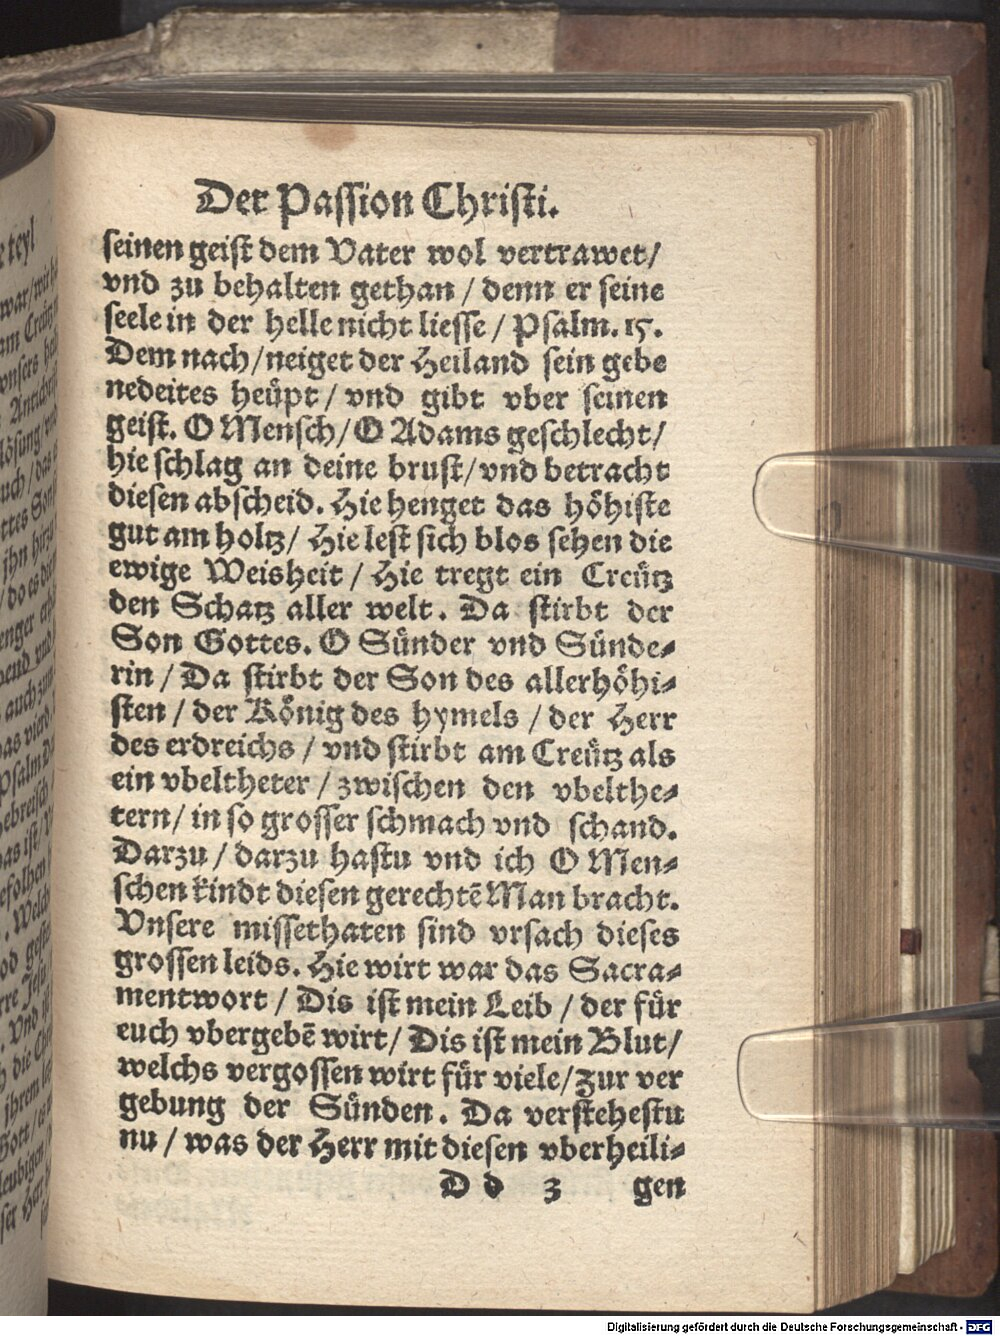 Der Passion Christi.
seinen geist dem Vater wol vertrawet/
vnd zu behalten gethan / denn er seine
seele in der helle nicht liesse / Psalm. 15.
Dem nach/neiget der Heiland sein gebe
nedeites heüpt / vnd gibt vber seinen
geist. O Mensch/ O Adams geschlecht/
hie schlag an deine brust/vnd betracht
diesen abscheid. Hie henget das höhiste
gut am holtz/ Hie lest sich blos sehen die
ewige Weisheit / Hie tregt ein Creütz
den Schatz aller welt. Da stirbt der
Son Gottes. O Sünder vnd Sünde⸗
rin / Da stirbt der Son des allerhöhi⸗
sten / der König des hymels / der Herr
des erdreichs / vnd stirbt am Creütz als
ein vbeltheter / zwischen den vbelthe⸗
tern/ in so grosser schmach vnd schand.
Darzu / darzu hastu vnd ich O Men⸗
schen kindt diesen gerechtē Man bracht.
Vnsere missethaten sind vrsach dieses
grossen leids. Hie wirt war das Sacra⸗
mentwort / Dis ist mein Leib / der für
euch vbergebē wirt/ Dis ist mein Blut/
welchs vergossen wirt für viele/zur ver
gebung der Sünden. Da verstehestu
nu / was der Herr mit diesen vberheili⸗
D d 3 gen
Digitalisierung gefördert durch die Deutsche Forschungsgemeinschaft - DFG